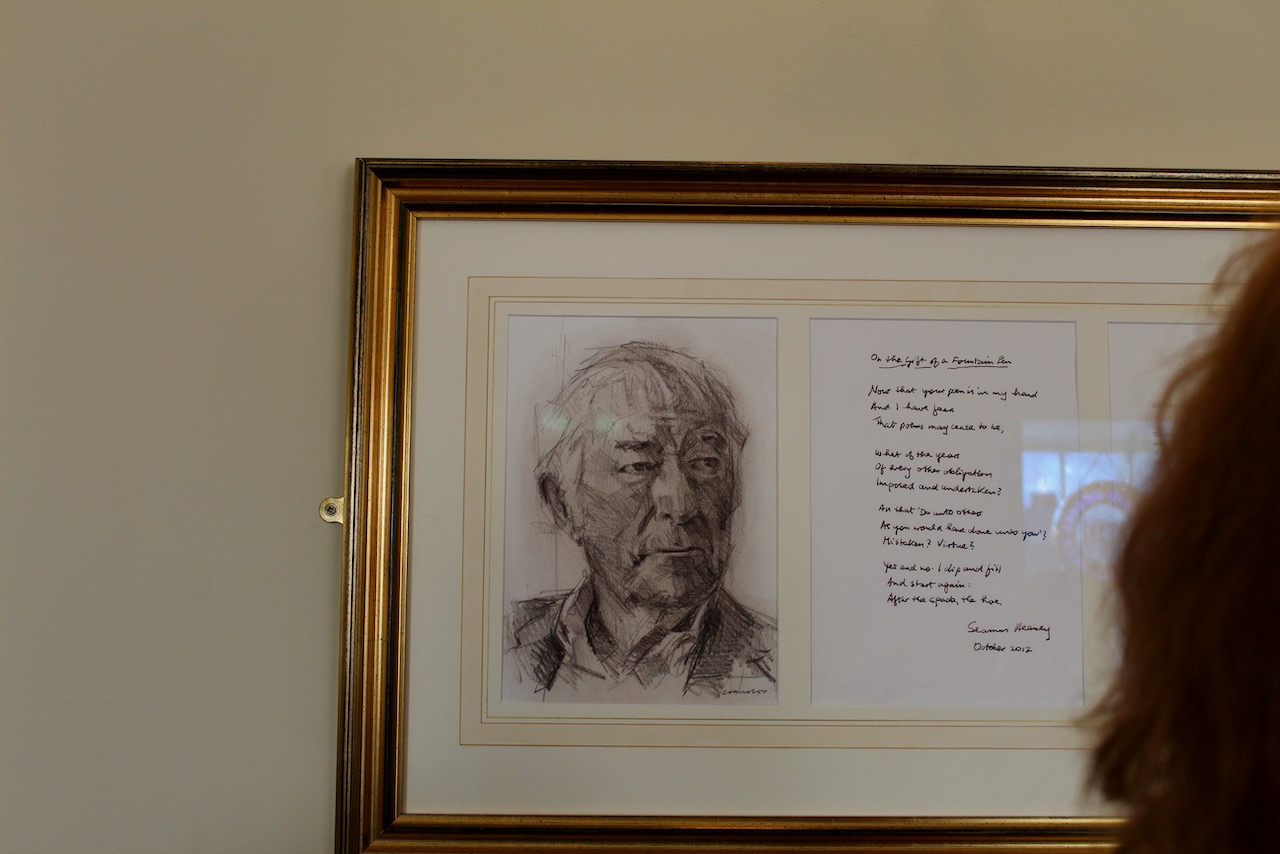 On the Gift of a Fountain Pen
Now that your pen is in my hand
And I have fears
That poems may cease to be,
What of the years
Of every other obligation
Imposed and undertaken?
All that 'Do unto others
As you would have done unto you'?
Mistaken? Virtue?
Yes and no. I dip and fill
And start again:
After the spade, the hoe.
Seamus Heaney
October 2012